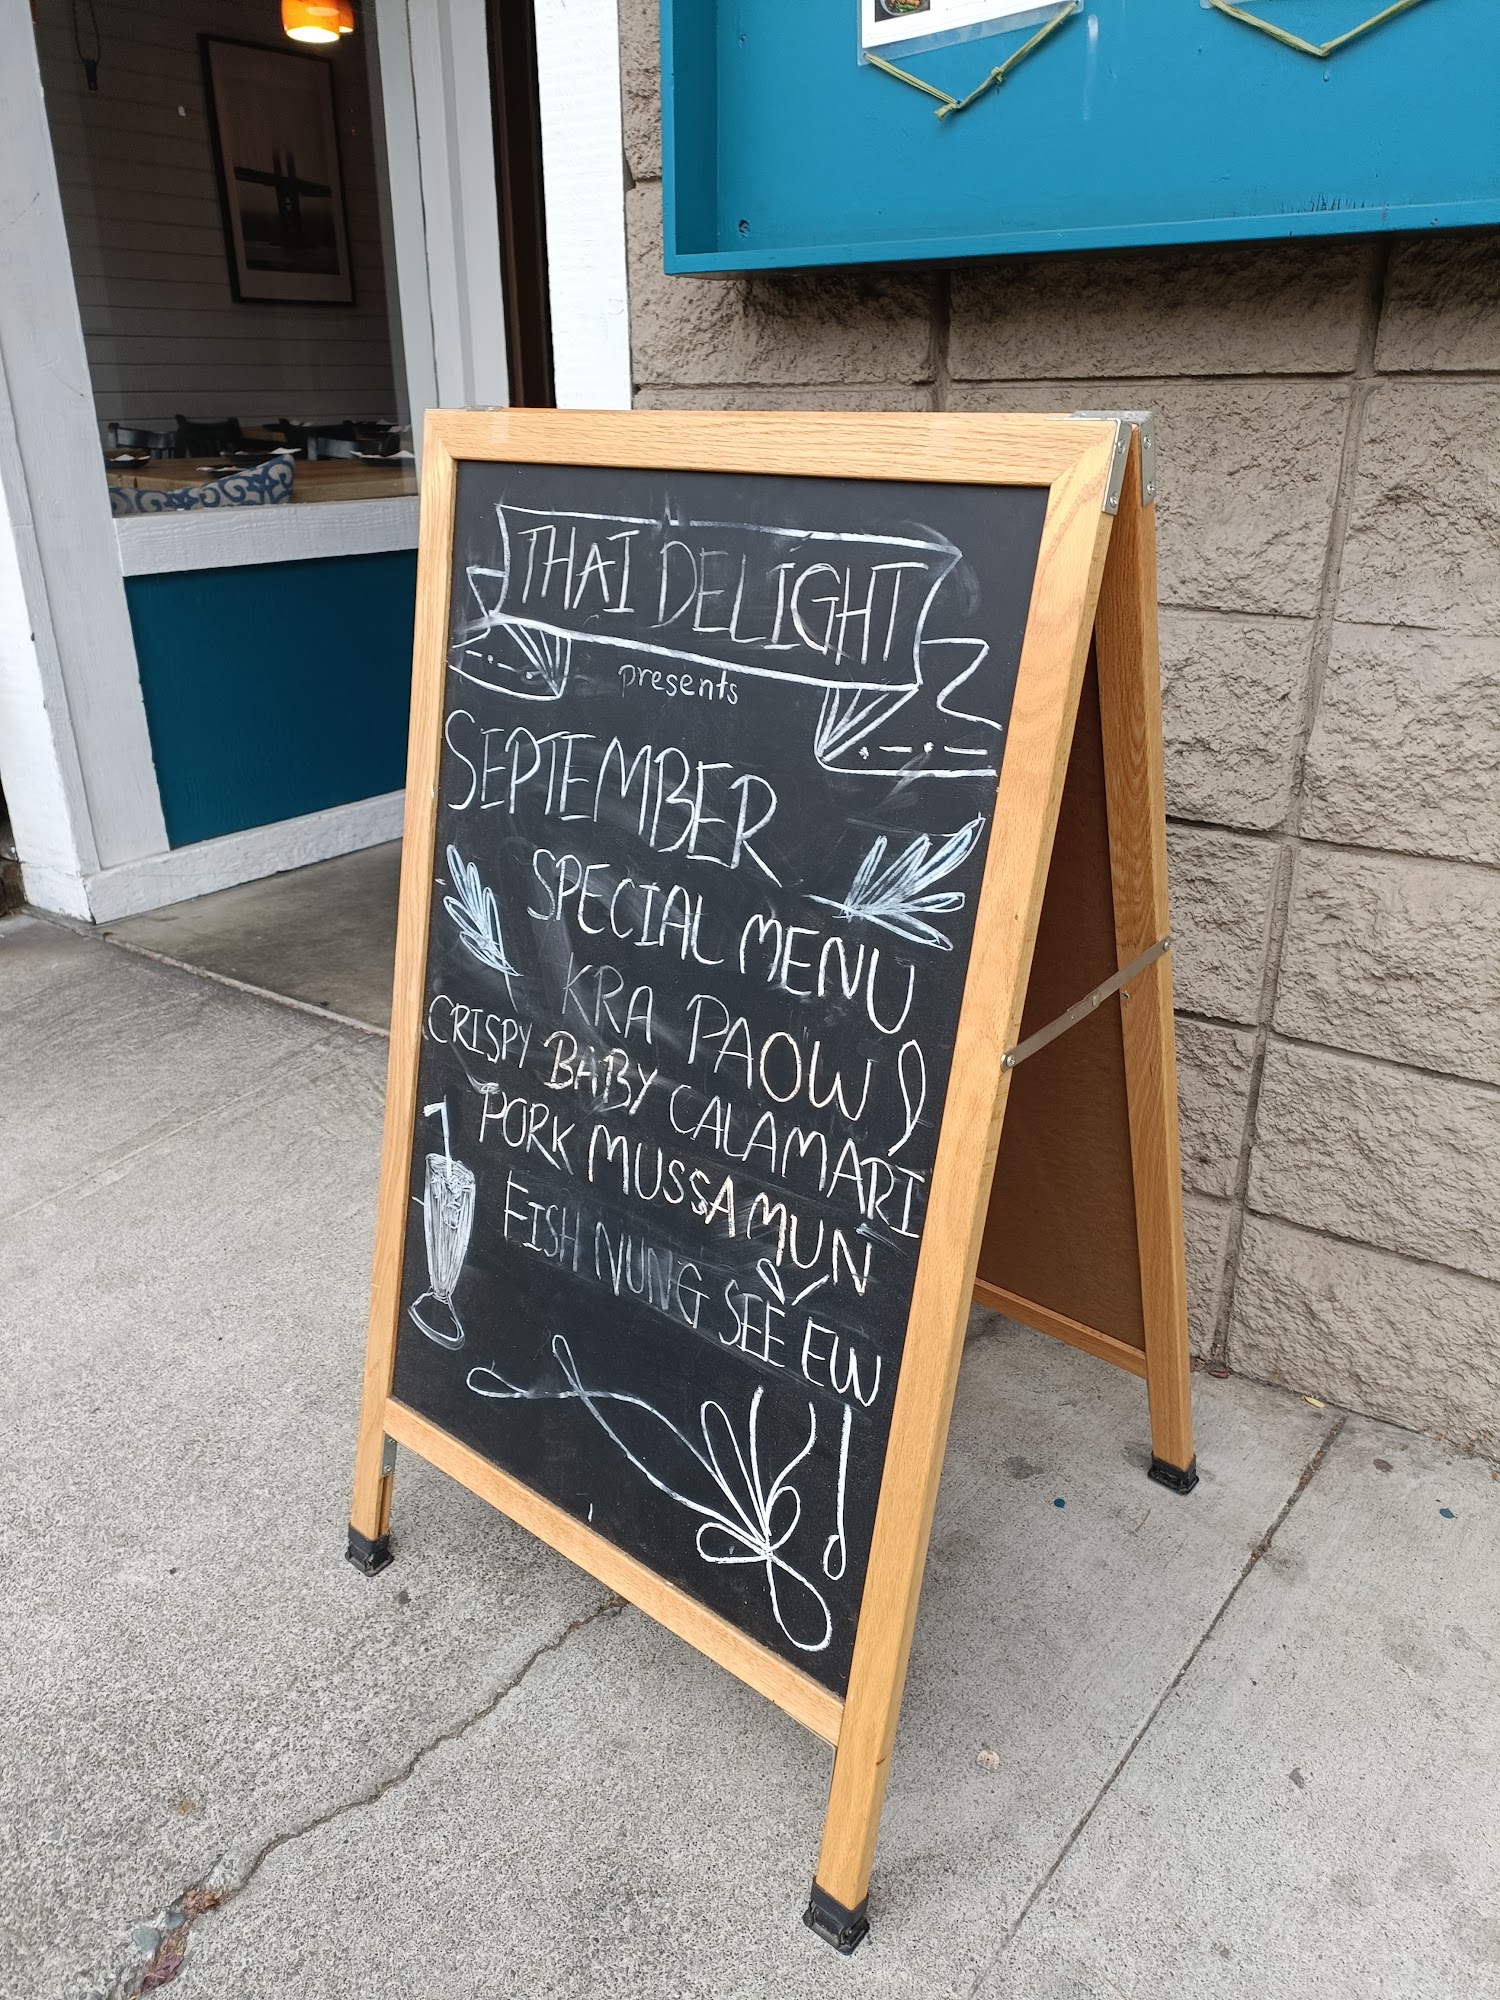 THAI DELIGHT
presents
SEPTEMBER
SPECIAL MENU
KRA PAOW
CRISPY BABY CALAMARI
PORK MUSSAMUN
FISH NUNG SEE EW